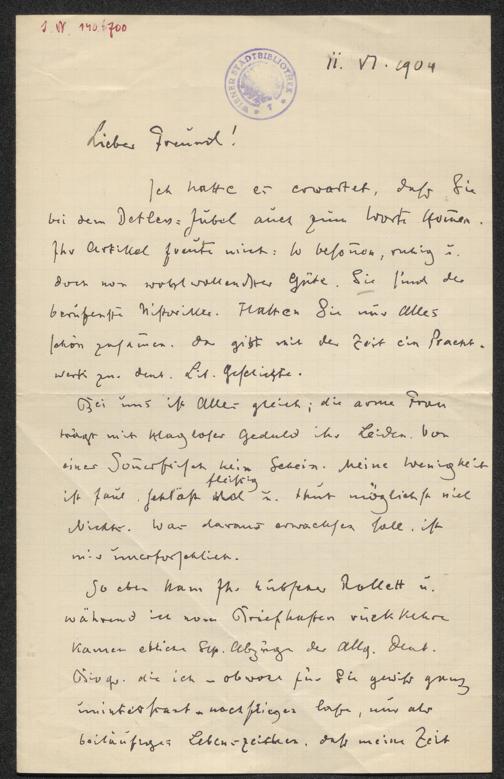 J. N. 140.700
WIENER STADTBIBLIOTHEK
11. VI. 1904
Lieber Freund!
Ich hatte es erwartet, daß Sie
bei dem Detlev-Jubel auch zum Worte kom̄en.
Ihr Artikel freute mich: so beson̄en, ruhig u.
doch von wohlwollendster Güte. Sie sind der
berufenste Historiker. Halten Sie nur Alles
schön zusam̄en. Das gibt mit der Zeit ein Pracht-
werk zu deut. Lit. Geschichte.
Bei uns ist Alles gleich; die arme Frau
trägt mit klagloser Geduld ihr Leiden. Von
einer Som̄erfrische kein Schein. Meine Wenigkeit
ist faul, schläft fleißig u. thut möglichst viel
Nichts. Was daraus erwachsen soll, ist
mir unerforschlich.
So eben kam Ihr hübscher Rollett u.
während ich vom Briefkasten rückkehre
kamen etliche Sep. Abzüge der Allg. Deut.
Biogr. die ich – obwol für Sie gewiß ganz
uninteressant – nachfliegen lasse, nur als
beiläufiges Lebenszeichen, daß meine Zeit